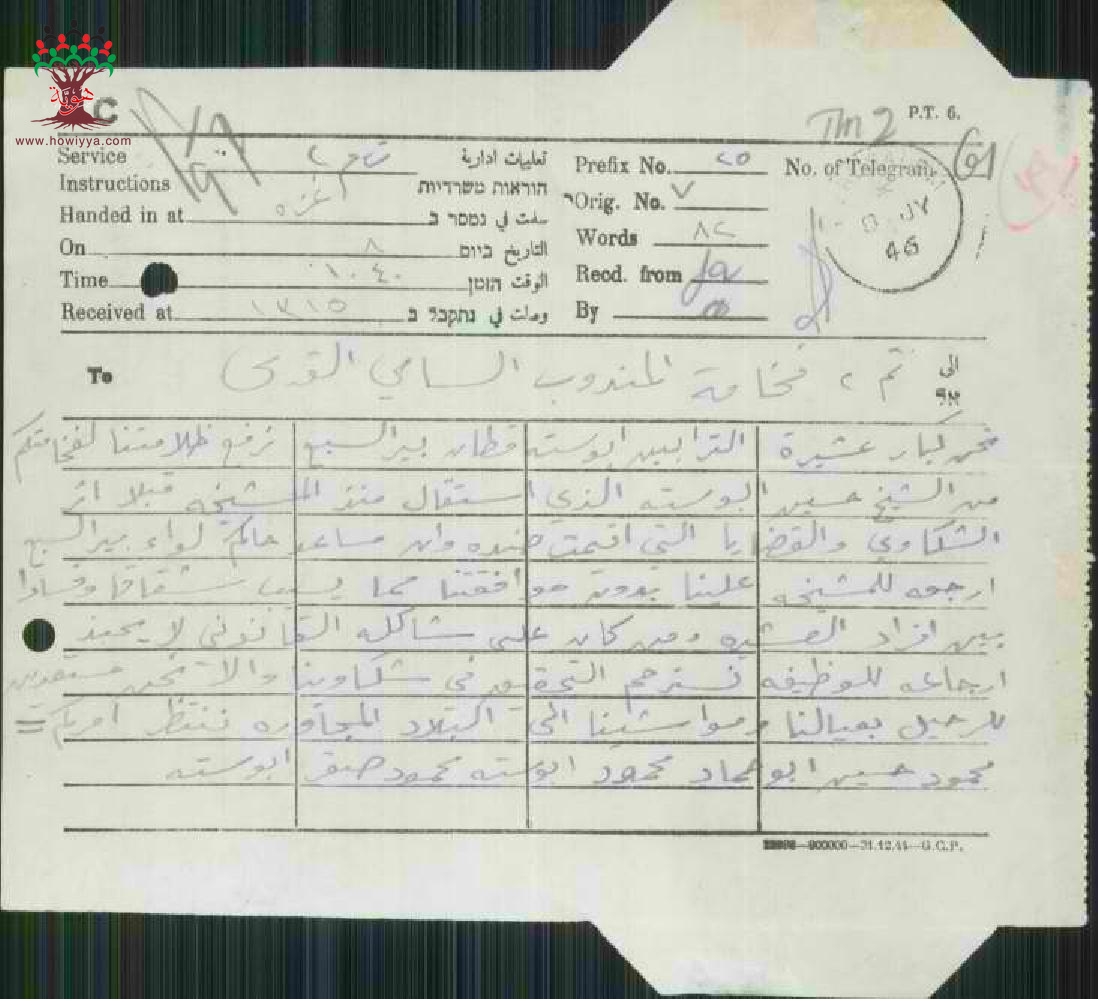 www.howiyya.com
C
P.T. 6.
Service تعليمات ادارية
Instructions הוראות משרדיות
Handed in at غزه سلمت في נמסר ב
On ٨ التاريخ ביום
Time ١٠٤٠ الوقت הזמן
Received at ١٣١٥ وصلت في נתקבל ב
Prefix No. ٢٥
Orig. No. ٧
Words ٨٢
Recd. from
By
No. of Telegram
46
To فخامة المندوب السامي القدس الى אל
نحن كبار عشيرة الترابين ابوسته قطان بيرالسبع نرفع ظلامتنا لفخامتكم
من الشيخ حسين ابوسته الذي استقال منذ المشيخه قبلا اثر
الشكاوي والقضايا التي اقيمت ضده وان مساعد حاكم لواء بيرالسبع
ارجعه للمشيخه علينا بدون موافقتنا مما يسبب شقاقا وفسادا
بين افراد العشيره ومن كان على شاكله القانوني لا يحبذ
ارجاعه للوظيفه نسترحم التحقيق في شكاوينا والا نحن مستعدين
للرحيل بعيالنا ومواشينا الى البلاد المجاوره ننتظر امركم =
محمود حسين ابوحماد محمود ابوسته محمود صقر ابوسته
900000—31.12.44—G.C.P.